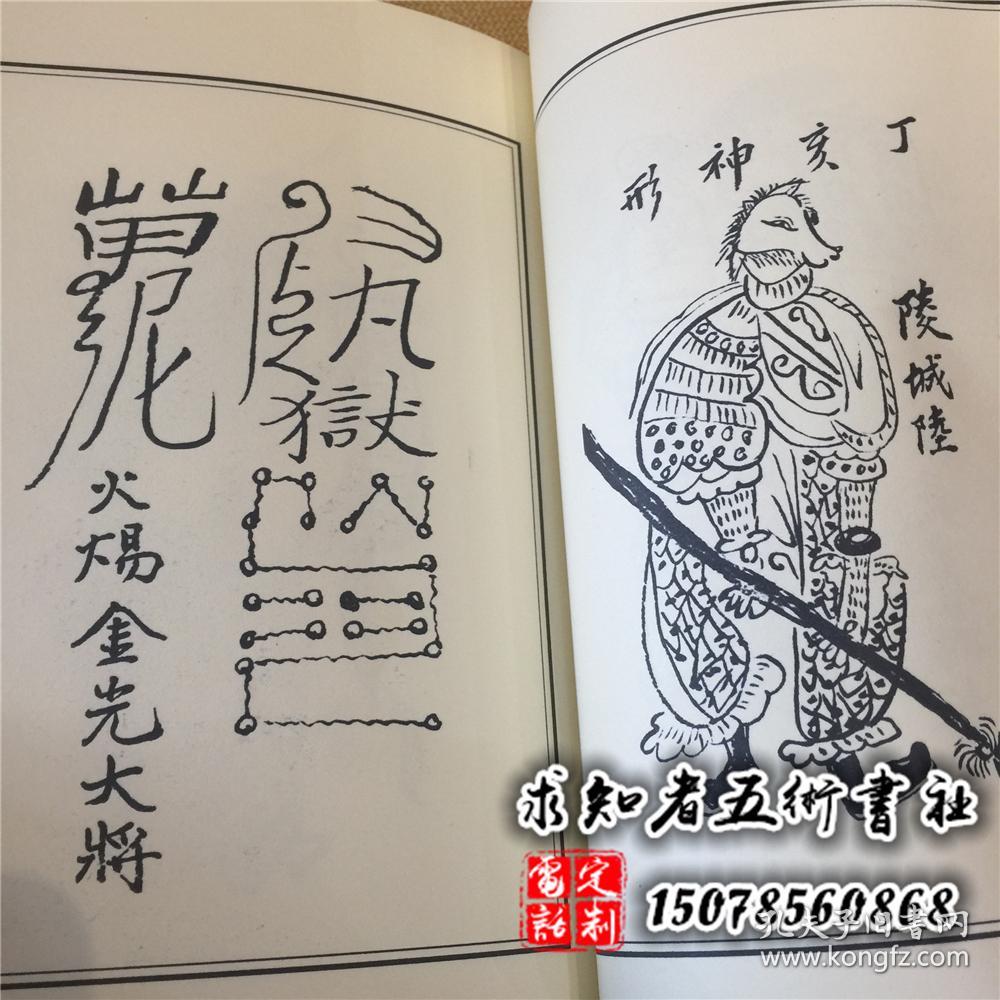 丁亥神形
陵城陸
獄
火煬金光大將
求知者五術書社
電話
定制
15078560868
孔夫子旧书网
www.kongfz.com